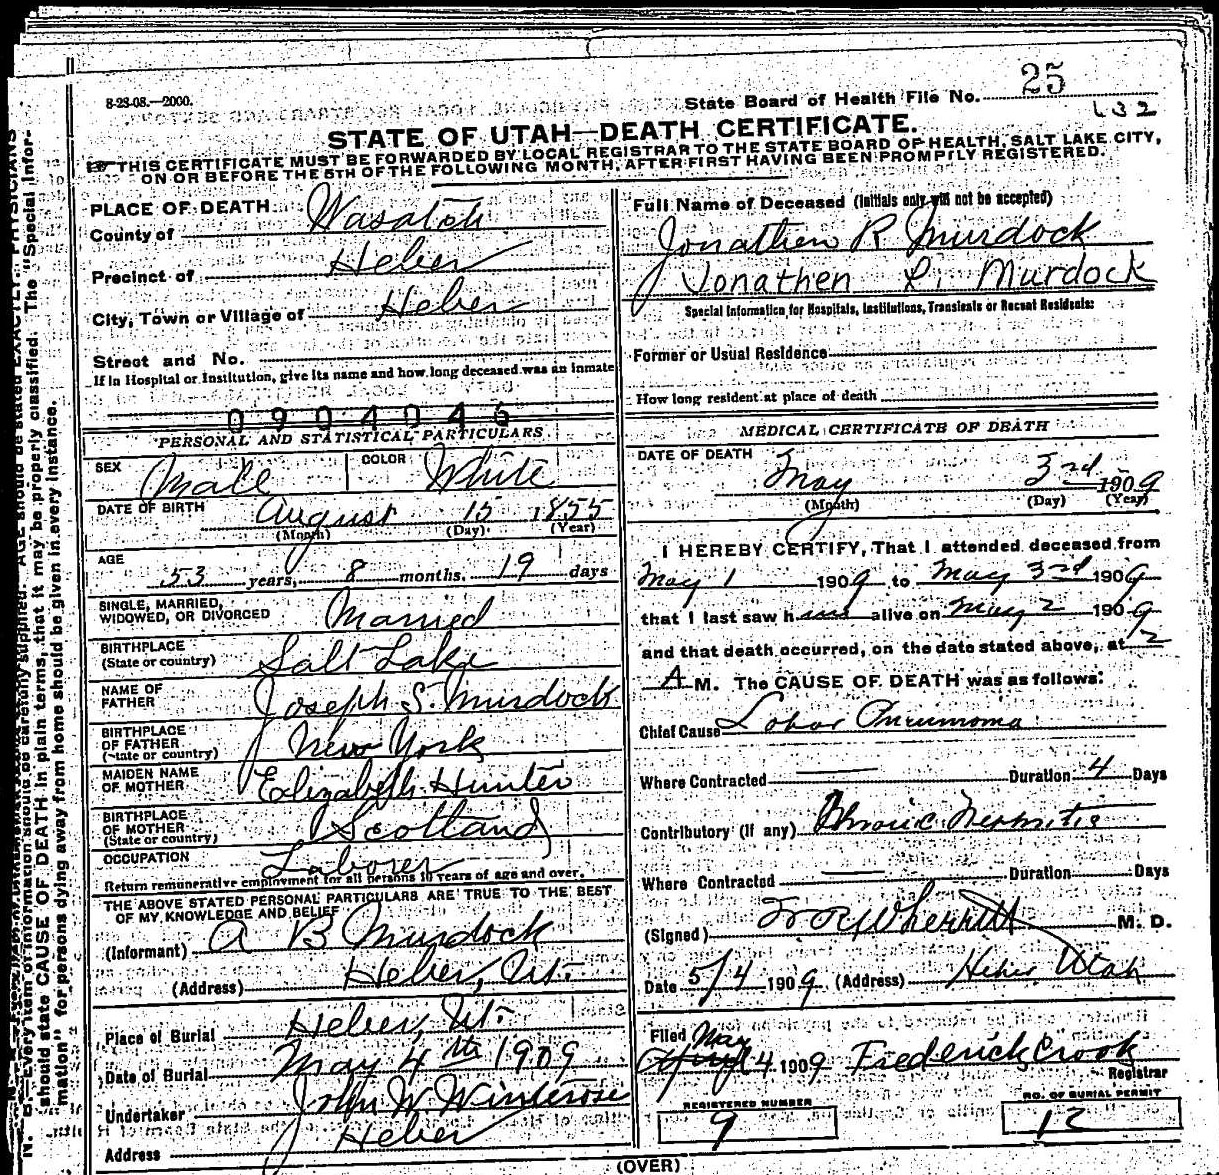 8-28-08.—2000.
State Board of Health File No. 25
132
STATE OF UTAH—DEATH CERTIFICATE.
THIS CERTIFICATE MUST BE FORWARDED BY LOCAL REGISTRAR TO THE STATE BOARD OF HEALTH, SALT LAKE CITY,
ON OR BEFORE THE 5TH OF THE FOLLOWING MONTH, AFTER FIRST HAVING BEEN PROMPTLY REGISTERED.
PLACE OF DEATH
County of Wasatch
Precinct of Heber
City, Town or Village of Heber
Street and No.
If in Hospital or Institution, give its name and how long deceased was an inmate
0904046
PERSONAL AND STATISTICAL PARTICULARS
SEX Male COLOR White
DATE OF BIRTH August 15 1855
(Month) (Day) (Year)
AGE 53 years, 8 months, 19 days
SINGLE, MARRIED,
WIDOWED, OR DIVORCED Married
BIRTHPLACE
(State or country) Salt Lake
NAME OF
FATHER Joseph S. Murdock
BIRTHPLACE
OF FATHER
(State or country) New York
MAIDEN NAME
OF MOTHER Elizabeth Hunter
BIRTHPLACE
OF MOTHER
(State or country) Scotland
OCCUPATION Laborer
Return remunerative employment for all persons 10 years of age and over.
THE ABOVE STATED PERSONAL PARTICULARS ARE TRUE TO THE BEST
OF MY KNOWLEDGE AND BELIEF
(Informant) A B Murdock
(Address) Heber, Ut.
Place of Burial Heber, Ut.
Date of Burial May 4th 1909
Undertaker John W. Winterose
Address Heber
Full Name of Deceased (Initials only will not be accepted)
Jonathen R Murdock
Jonathen R. Murdock
Special Information for Hospitals, Institutions, Transients or Recent Residents:
Former or Usual Residence
How long resident at place of death
MEDICAL CERTIFICATE OF DEATH
DATE OF DEATH
May 3rd 1909
(Month) (Day) (Year)
I HEREBY CERTIFY, That I attended deceased from
May 1 1909 to May 3rd 1909
that I last saw h alive on May 2 1909
and that death occurred, on the date stated above, at 2
A M. The CAUSE OF DEATH was as follows:
Chief Cause Lobar Pneumonia
Where Contracted Duration 4 Days
Contributory (if any) Chronic Nephritis
Where Contracted Duration Days
(Signed) Wherritt M. D.
Date 5/4 1909 (Address) Heber Utah
Filed May
April 4 1909 Frederick Crook
Registrar
REGISTERED NUMBER
9
NO. OF BURIAL PERMIT
12
(OVER)
should state CAUSE OF DEATH in plain terms, that it may be properly classified. The "Special Infor-
mation" for persons dying away from home should be given in every instance.